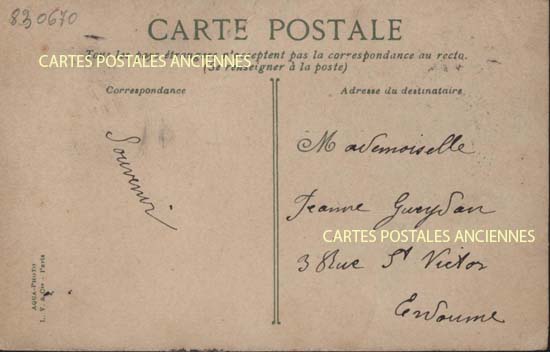 830670
CARTE POSTALE
Tous les pays étrangers n'acceptent pas la correspondance au recto.
CARTES POSTALES ANCIENNES
(Se renseigner à la poste)
Correspondance
Souvenir
AQUA-PHOTO
L. V. & Cie - Paris
Adresse du destinataire
Mademoiselle
Jeanne Gueydan
CARTES POSTALES ANCIENNES
3 Rue St Victor
Endoume